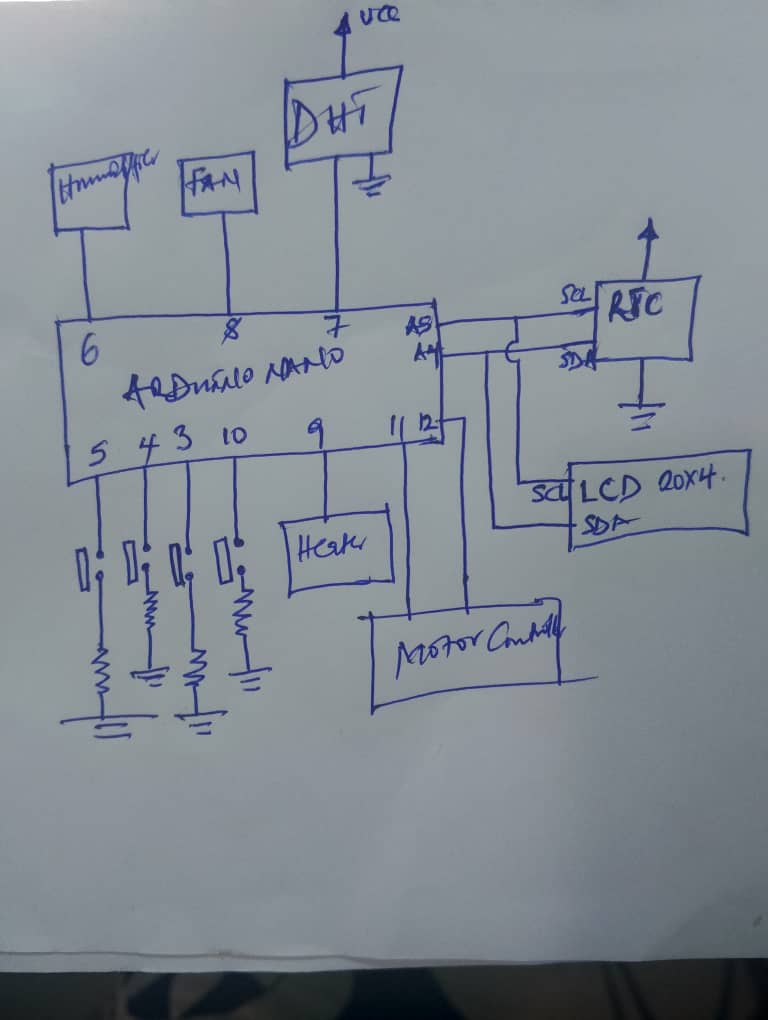 VCC
DHT
Humidifier
FAN
SCL
RTC
SDA
6
8
7
A5
A4
ARDUINO NANO
5
4
3
10
9
11
12
SCL
LCD 20X4.
SDA
Heater
Motor Controller